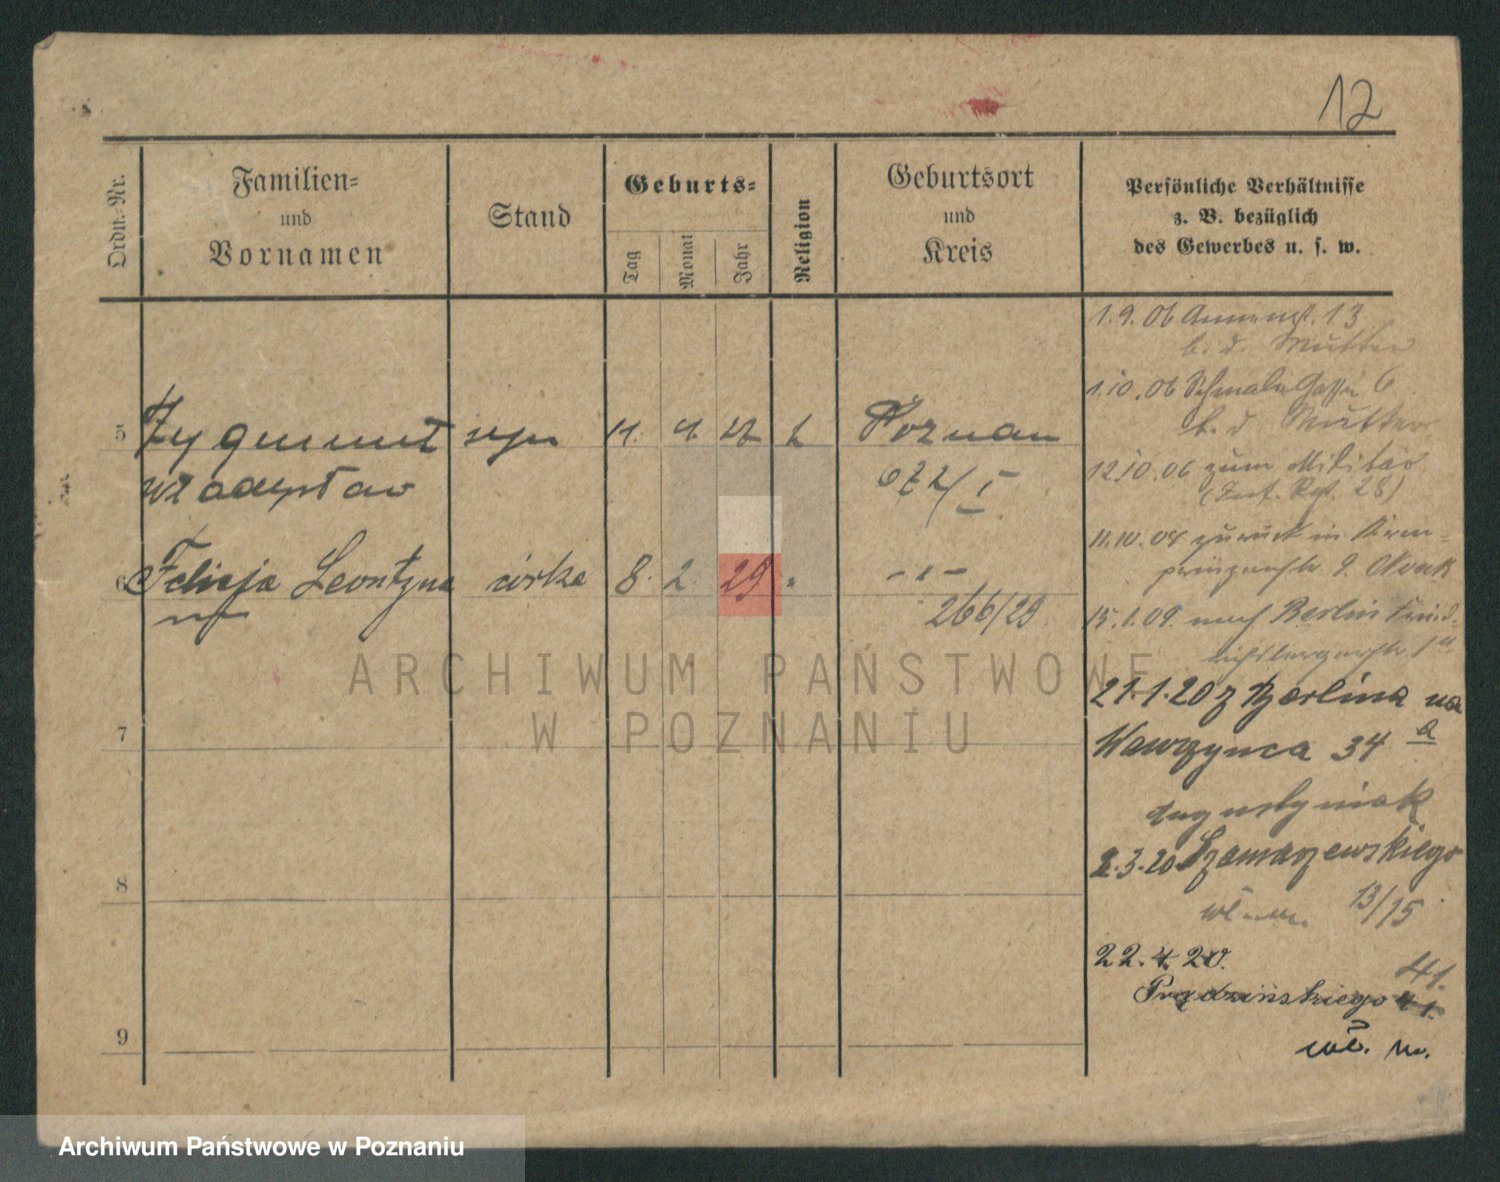 12
Ordn.-Nr.
Familien-
und
Vornamen
Stand
Geburts-
Tag
Monat
Jahr
Religion
Geburtsort
und
Kreis
Persönliche Verhältnisse
z. B. bezüglich
des Gewerbes u. s. w.
1.9.06 Annenst. 13
b. d. Mutter
1.10.06 Schmale Gasse 6
b. d. Mutter
5 Zygmunt syn 11. Poznan
Władysław
12.10.06 zum Militär
(Inf. Rgt. 28)
11.10.08 zurück in Kron-
prinzenstr. Nowak
6 Felicja Leontyna córka 8. 2. 29. " - " -
266/29
15.1.09. nach Berlin
21.1.20 z Berlina na
Wawrzynca 34 a
Augustyniak
2.3.20 Szamarzewskiego
13/15
22.4.20. 41.
Prądzińskiego 41.
wł. m.
7
8
9
ARCHIWUM PAŃSTWOWE
W POZNANIU
Archiwum Państwowe w Poznaniu